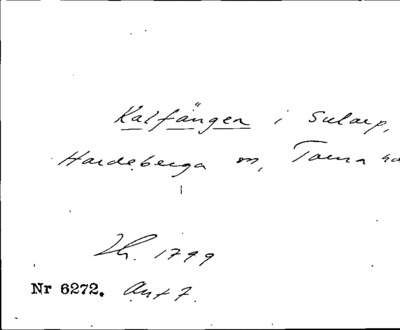 Kalfängen i Sularp,
Hardeberga sn, Torna hd
1799
Nr 6272. Akt 7.